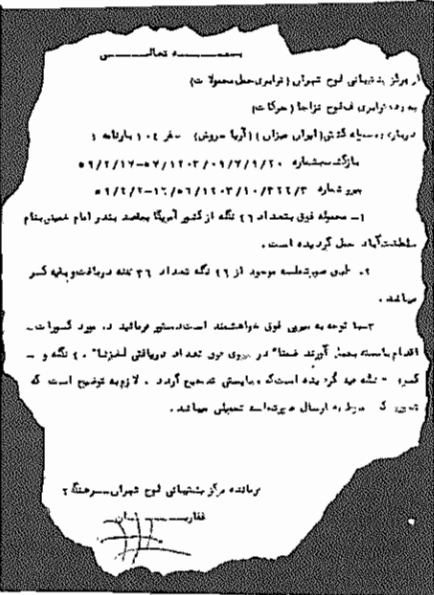 بسمه تعالی
از مرکز پشتیبانی فوج شهران (ترابری حمل محمولات)
به رده ترابری ف فوج نزاجا (حرکات)
درباره کشتی (ایران میزان) (آریا سروش) سفر ۱۰۴ بارنامه ۱
بازگشت بشماره ۵۷/۱۲۰۳/۰۹/۷/۹/۲۰-۵۹/۲/۱۷
پیرو شماره ۵۶/۱۲۰۳/۱۰/۳۲۲/۳
۱- محموله فوق بتعداد ۴۶ نگله از کشور آمریکا بمقصد بندر امام خمینی بنام
سلطنت آباد حمل گردیده است.
۲- طبق صورتجلسه موجود از ۴۶ نگله تعداد ۳۶ نگله دریافت و بقیه کسر
میباشد.
۳- با توجه به مراتب فوق خواهشمند است دستور فرمائید در مورد کسورات
اقدام بایسته بعمل آورند ضمنا" در پیروی فوق تعداد دریافتی لغزشا" ۴۰ نگله و
کسری نگله قید گردیده است که میبایستی تصحیح گردد. لازم به توضیح است که
تصویر مربوطه ارسال صورتجلسه تحویلی میباشد.
فرمانده مرکز پشتیبانی فوج شهران - سرهنگ ۲
غفاریان